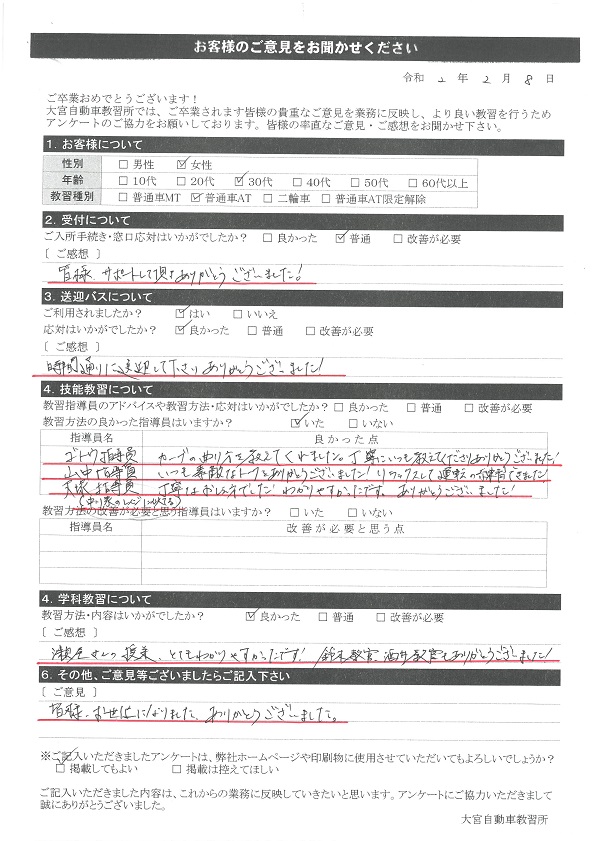 お客様のご意見をお聞かせください
令和 2 年 2 月 8 日
ご卒業おめでとうございます！
大宮自動車教習所では、ご卒業されます皆様の貴重なご意見を業務に反映し、より良い教習を行うため
アンケートのご協力をお願いしております。皆様の率直なご意見・ご感想をお聞かせ下さい。
1. お客様について
性別 □ 男性 ☑ 女性
年齢 □ 10代 □ 20代 ☑ 30代 □ 40代 □ 50代 □ 60代以上
教習種別 □ 普通車MT ☑ 普通車AT □ 二輪車 □ 普通車AT限定解除
2. 受付について
ご入所手続き・窓口応対はいかがでしたか？ □ 良かった ☑ 普通 □ 改善が必要
［ ご感想 ］
皆様、サポートして頂きありがとうございました！
3. 送迎バスについて
ご利用されましたか？ ☑ はい □ いいえ
応対はいかがでしたか？ ☑ 良かった □ 普通 □ 改善が必要
［ ご感想 ］
時間通りに送迎して下さりありがとうございました！
4. 技能教習について
教習指導員のアドバイスや教習方法・応対はいかがでしたか？ □ 良かった □ 普通 □ 改善が必要
教習方法の良かった指導員はいますか？ ☑ いた □ いない
指導員名 良かった点
ゴトウ指導員 カーブの曲り方を教えてくれました。丁寧にいつも教えてくださりありがとうございました！
山中指導員 いつも素敵なトークをありがとうございました！リラックスして運転の練習できました！
天塚指導員 丁寧なおしえ方でした！わかりやすかったです。ありがとうございました！
教習方法の改善が必要と思う指導員はいますか？ □ いた □ いない
指導員名 改善が必要と思う点
4. 学科教習について
教習方法・内容はいかがでしたか？ ☑ 良かった □ 普通 □ 改善が必要
［ ご感想 ］
さんの授業、とてもわかりやすかったです！鈴木教官、酒井教官もありがとうございました！
6. その他、ご意見等ございましたらご記入下さい
［ ご意見 ］
皆様、お世話になりました。ありがとうございました。
※ご記入いただきましたアンケートは、弊社ホームページや印刷物に使用させていただいてもよろしいでしょうか？
☑ 掲載してもよい □ 掲載は控えてほしい
ご記入いただきました内容は、これからの業務に反映していきたいと思います。アンケートにご協力いただきまして
誠にありがとうございました。
大宮自動車教習所